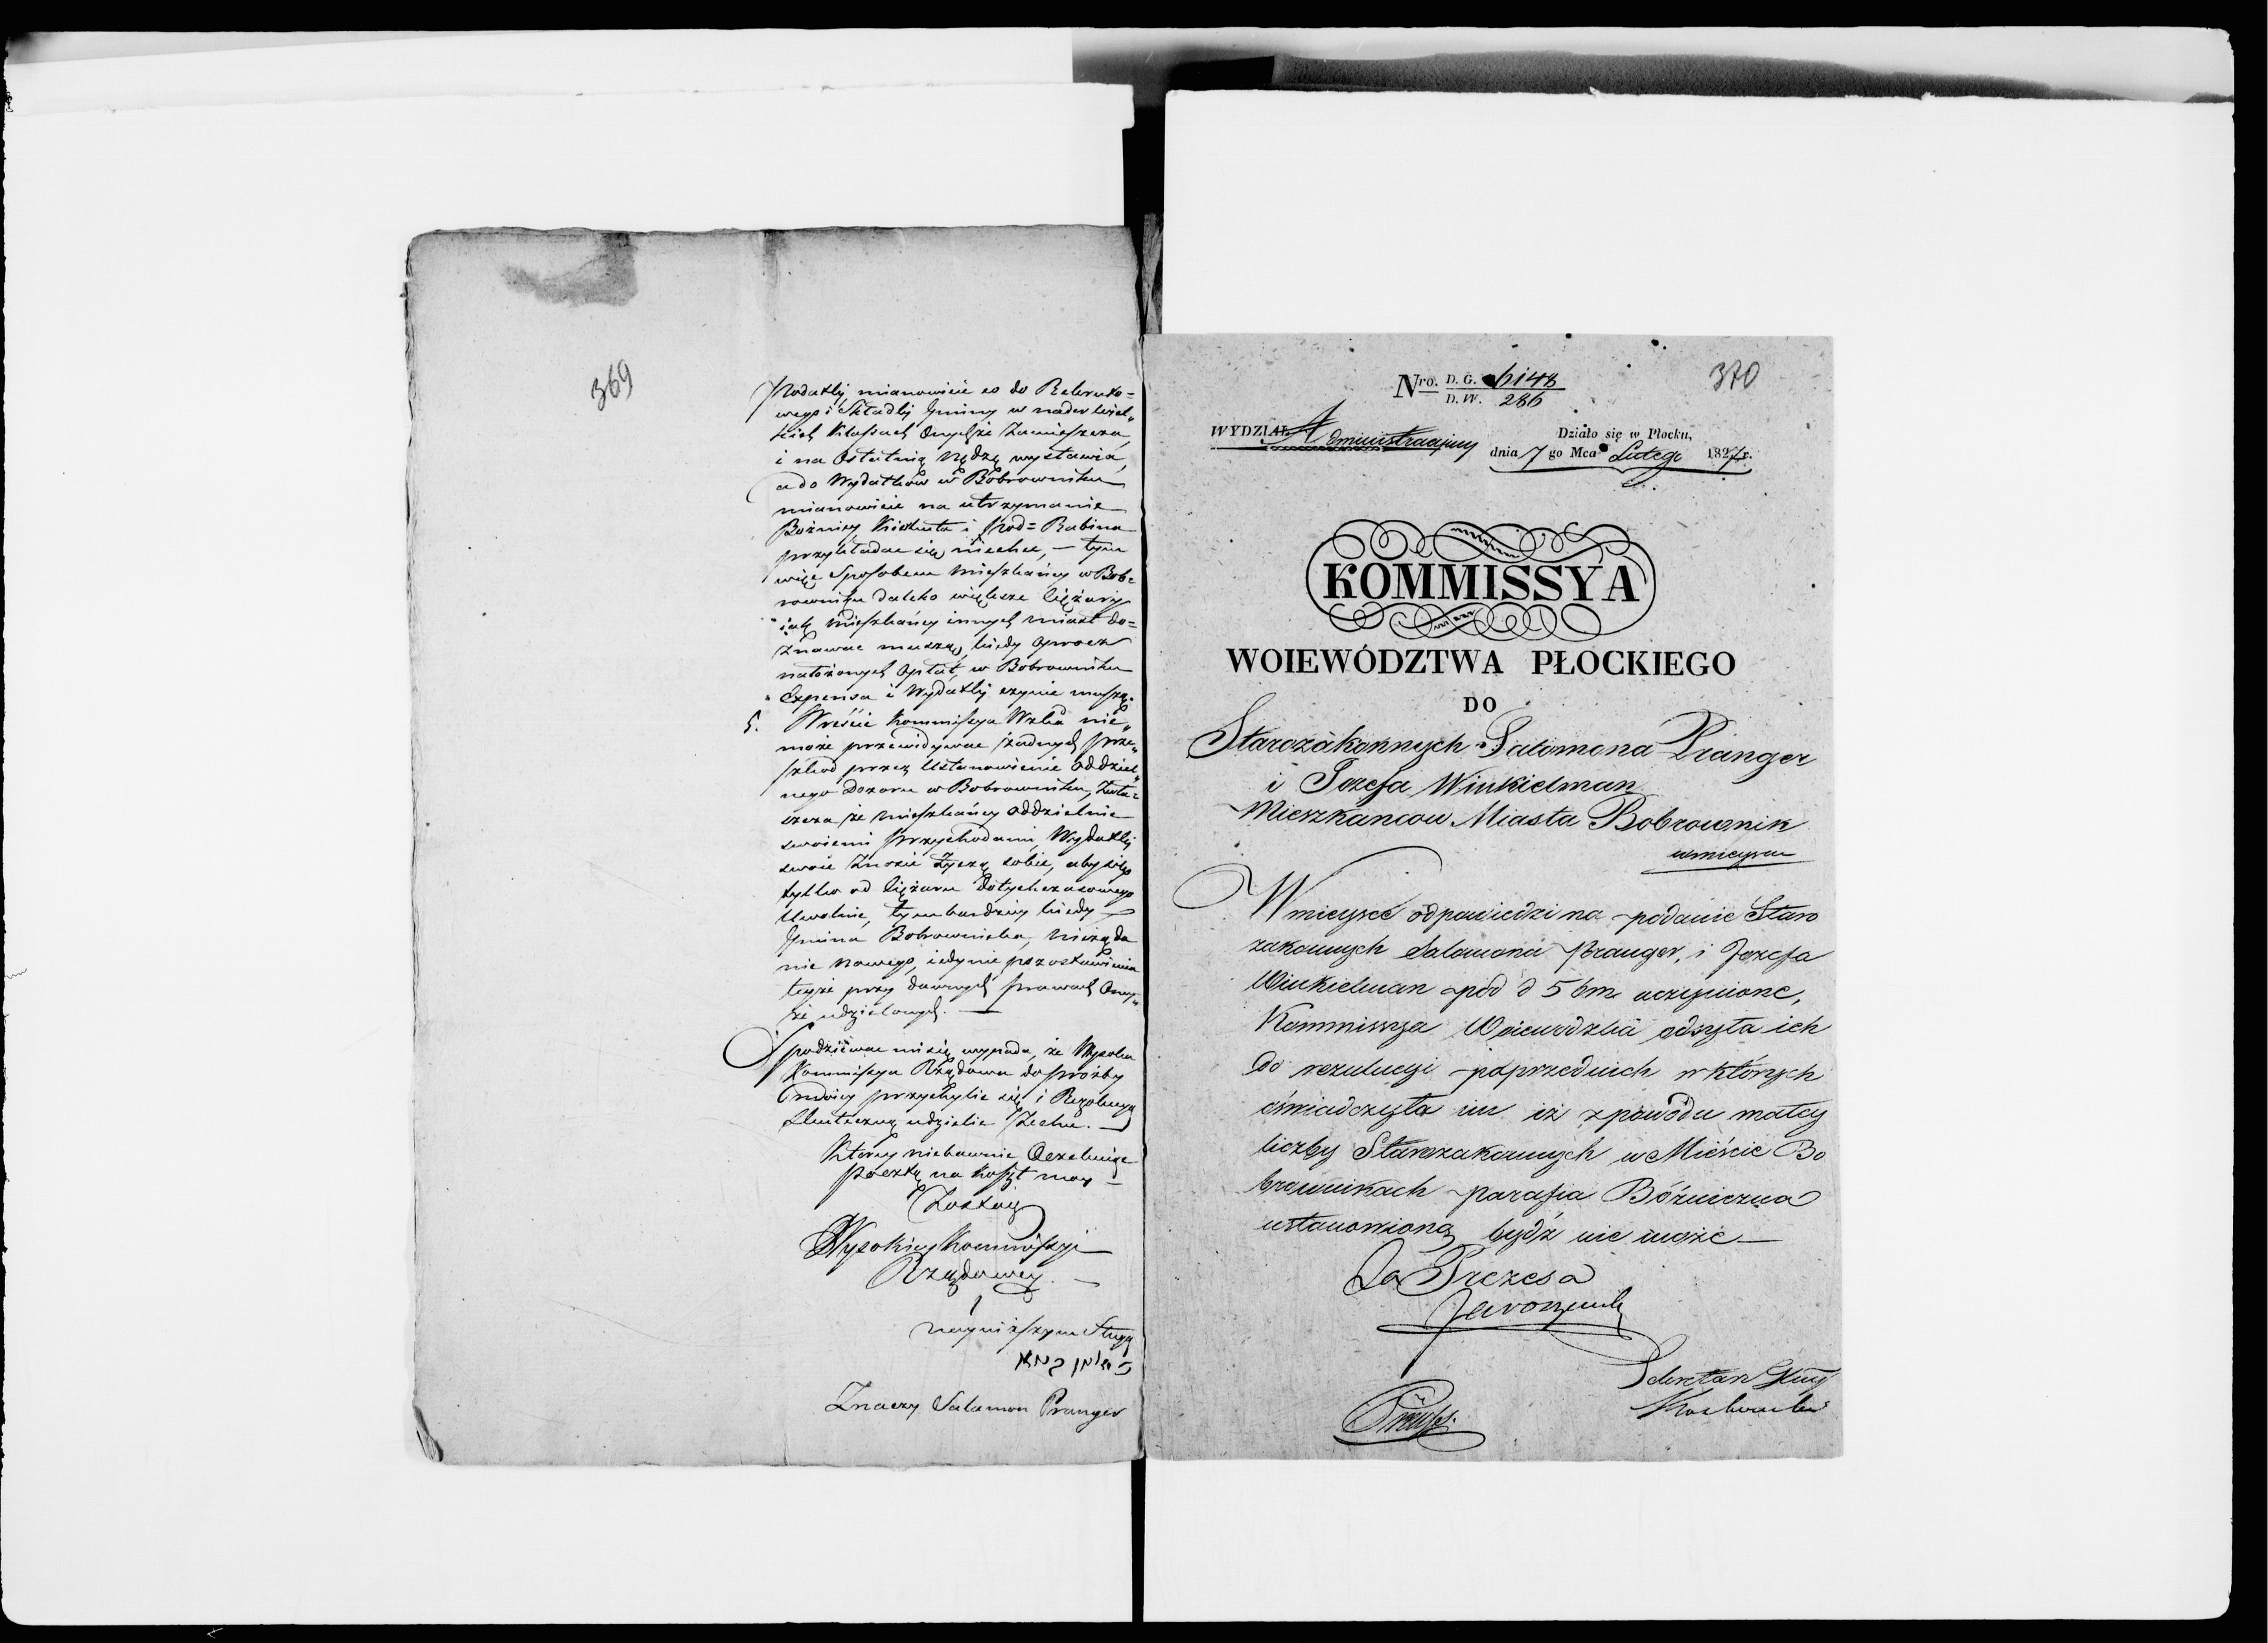 369
Podatki, mianowicie co do Rekruto=
wego i Składki Gminy w nader wiel„
kich Klassach Onychże zamieszcza,
i na Ostatnią nędzę wystawia,
a do Wydatków w Bobrowniku
mianowicie na utrzymanie
Bożnicy, Kirkuta i Pod=Rabina
przykładac się niechce, — tym
więc sposobem Mieszkańcy w Bob=
rowniku daleko większe ciężary
jak Mieszkańcy innych miast do=
znawac muszą, kiedy oprocz
nałożonych Opłat, w Bobrowniku
Expensa i Wydatki czynic muszą.
5. Wreście Kommissya Wzka nie„
może przewidywac żadnych prze„
szkod przez Ustanowienie oddziel„
nego Dozoru w Bobrowniku, zwła=
szcza że Mieszkańcy oddzielnie
swoiemi Przychodami, Wydatki
swoie Znosic Życzą sobie, aby się
tylko od Ciężaru dotychczasowego
Uwolnic, tym bardziey kiedy
Gmina Bobrownicka, nieżąda
nic nowego, iedynie pozostawienia
teyże przy dawnych prawach Ony„
że udzielonych. —
Spodziéwac mi się wypada, że Wysoka
Kommissya Rządowa do prozby
moiey przychylic się i Rezolucyą
Skuteczną udzielic Zechce. —
Ktorey niebawnie Oczekuiąc
pocztą na koszt moy —
Zostaię
Wysokiey Kommissyi
Rządowey. —
nayniższym Sługą
Znaczy Salamon Pranger
370
Nro. D. G. 6148
D. W. 286
WYDZIAŁ Administracyiny
Działo się w Płocku,
dnia 7 go Mca Lutego 1827 r.
KOMMISSYA
WOIEWÓDZTWA PŁOCKIEGO
DO
Starozakonnych Salomona Pranger
i Jozefa Winkielman
Mieszkancow Miasta Bobrownik
w mieyscu
W mieysce odpowiedzi na podanie Staro
zakonnych Salomona Pranger, i Jozefa
Winkielman pod d 5 bm uczynione,
Kommissya Woiewodzka odsyła ich
do rezulucyi poprzednich w których
oświadczyła im iż z powodu małey
liczby Starozakonnych w Mieście Bo
browinkach parafia Bóżnicza
ustanowioną bydź nie może —
Za Prezesa
Sekretarz Jlny